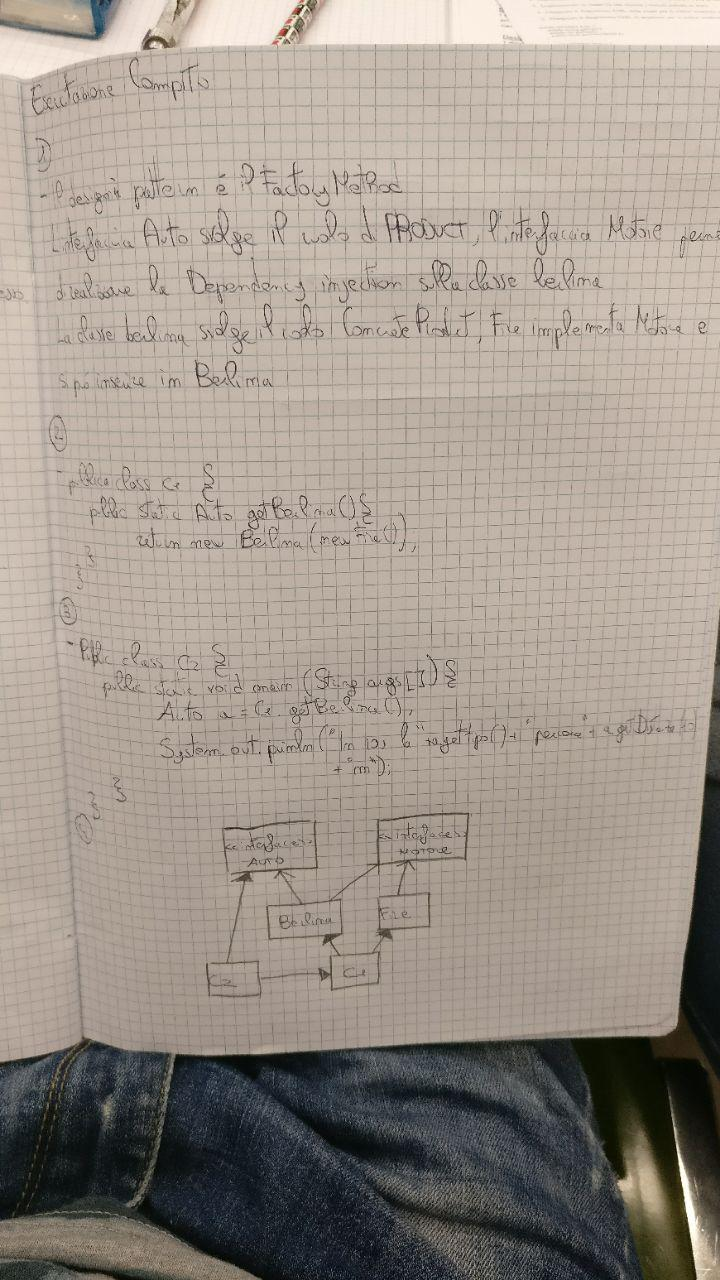 Esercitazione Compito
1)
- Il design pattern è il Factory Method
L'interfaccia Auto svolge il ruolo di PRODUCT, l'interfaccia Motore
di realizzare la Dependency injection sulla classe berlina
La classe berlina svolge il ruolo ConcreteProduct, Fire implementa Motore e
si può inserire in Berlina
2
- public class C1 {
public static Auto getBerlina() {
return new Berlina (new Fire());
}
}
3
- Public class C2 {
public static void main (String args[]) {
Auto a = C1.getBerlina();
System.out.println ("In 10s la "+a.getTipo()+" percorre "+a.getDistanza(10)
+ "m");
}
}
<<interface>>
AUTO
<<interface>>
MOTORE
Berlina
Fire
C2
C1